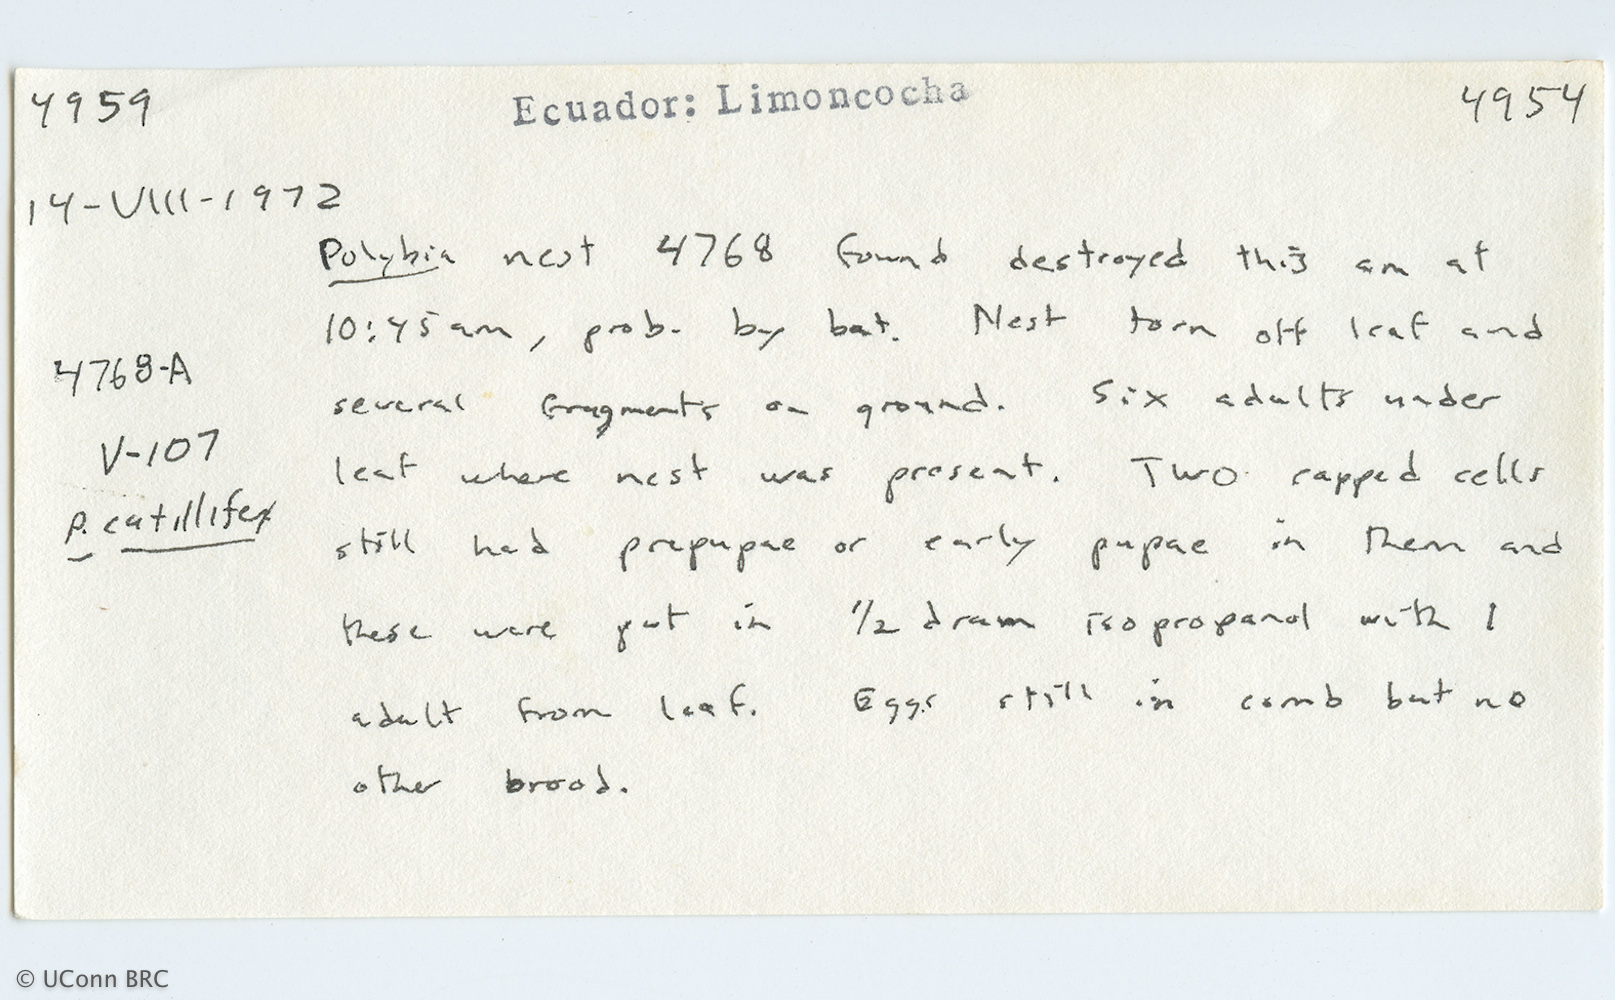 4959 Ecuador: Limoncocha 4954
14-VIII-1972
Polybia nest 4768 found destroyed this am at
10:45 am, prob. by bat. Nest torn off leaf and
4768-A
several fragments on ground. Six adults under
V-107
leaf where nest was present. Two capped cells
P. catillifex
still had prepupae or early pupae in them and
these were put in 1/2 dram isopropanol with 1
adult from leaf. Eggs still in comb but no
other brood.
© UConn BRC